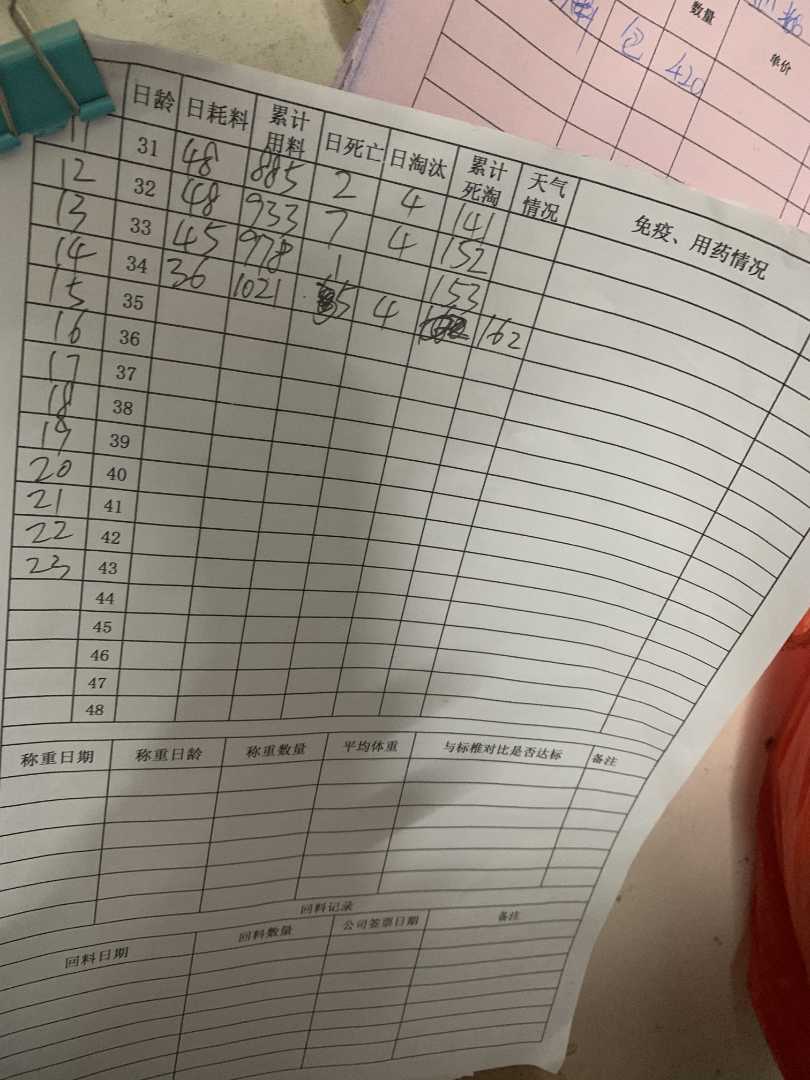 数量
单价
包 420
日龄 日耗料 累计用料 日死亡 日淘汰 累计死淘 天气情况 免疫、用药情况
11 31 48 885 2 4 141
12 32 48 933 7 4 152
13 33 45 978 1 153
14 34 36 1021 5 4 162
15 35
16 36
17 37
18 38
19 39
20 40
21 41
22 42
23 43
44
45
46
47
48
称重日期 称重日龄 称重数量 平均体重 与标椎对比是否达标 备注
回料记录
回料日期 回料数量 公司签票日期 备注